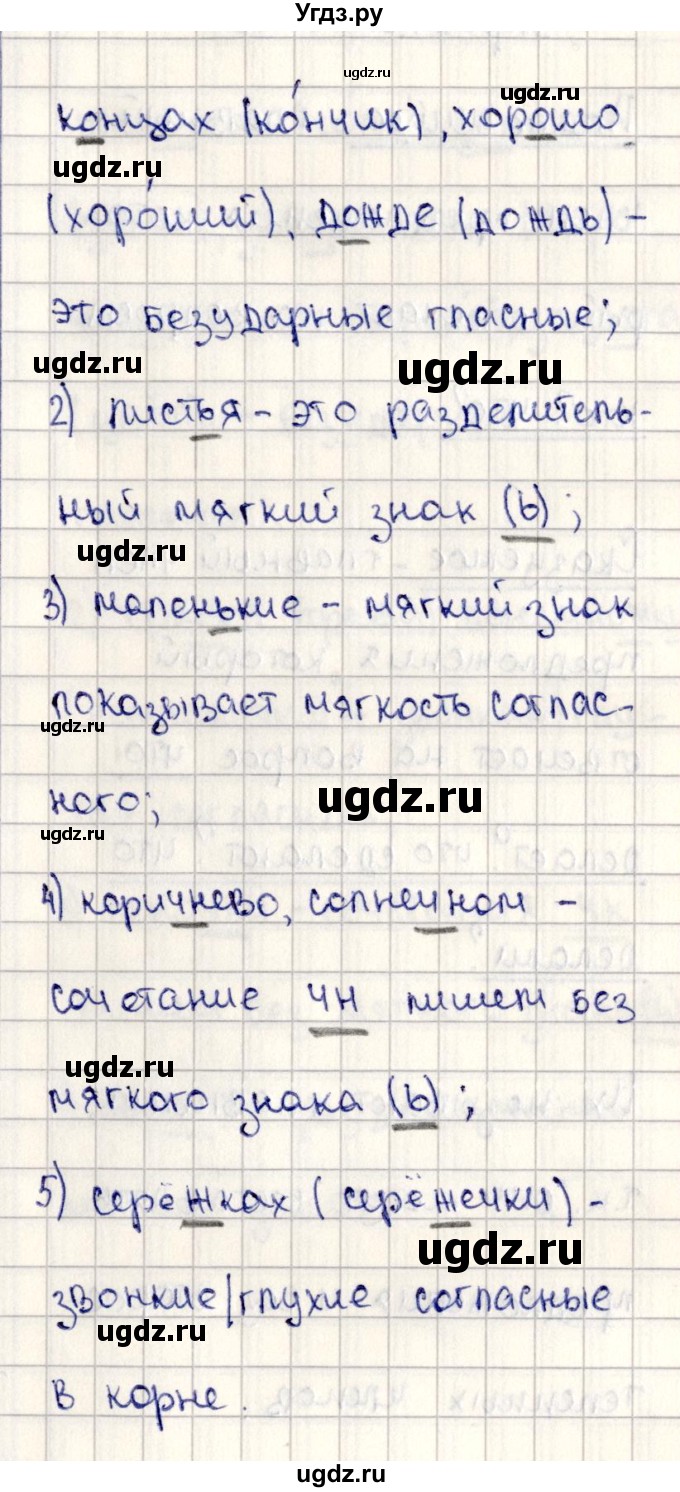 Угдз.ру
ugdz.ru
ugdz.ru
концах (ко́нчик), хорошо
ugdz.ru
(хоро́ший), дожде (дождь) –
это безударные гласные;
ugdz.ru
ugdz.ru
2) листья – это разделитель-
ный мягкий знак (ь);
ugdz.ru
3) маленькие – мягкий знак
показывает мягкость соглас-
ugdz.ru
ugdz.ru
ного;
ugdz.ru
4) коричнево, солнечном –
сочетание чн пишем без
ugdz.ru
мягкого знака (ь);
5) серёжках (серёжечки) –
ugdz.ru
звонкие/глухие согласные
ugdz.ru
в корне.
ugdz.ru